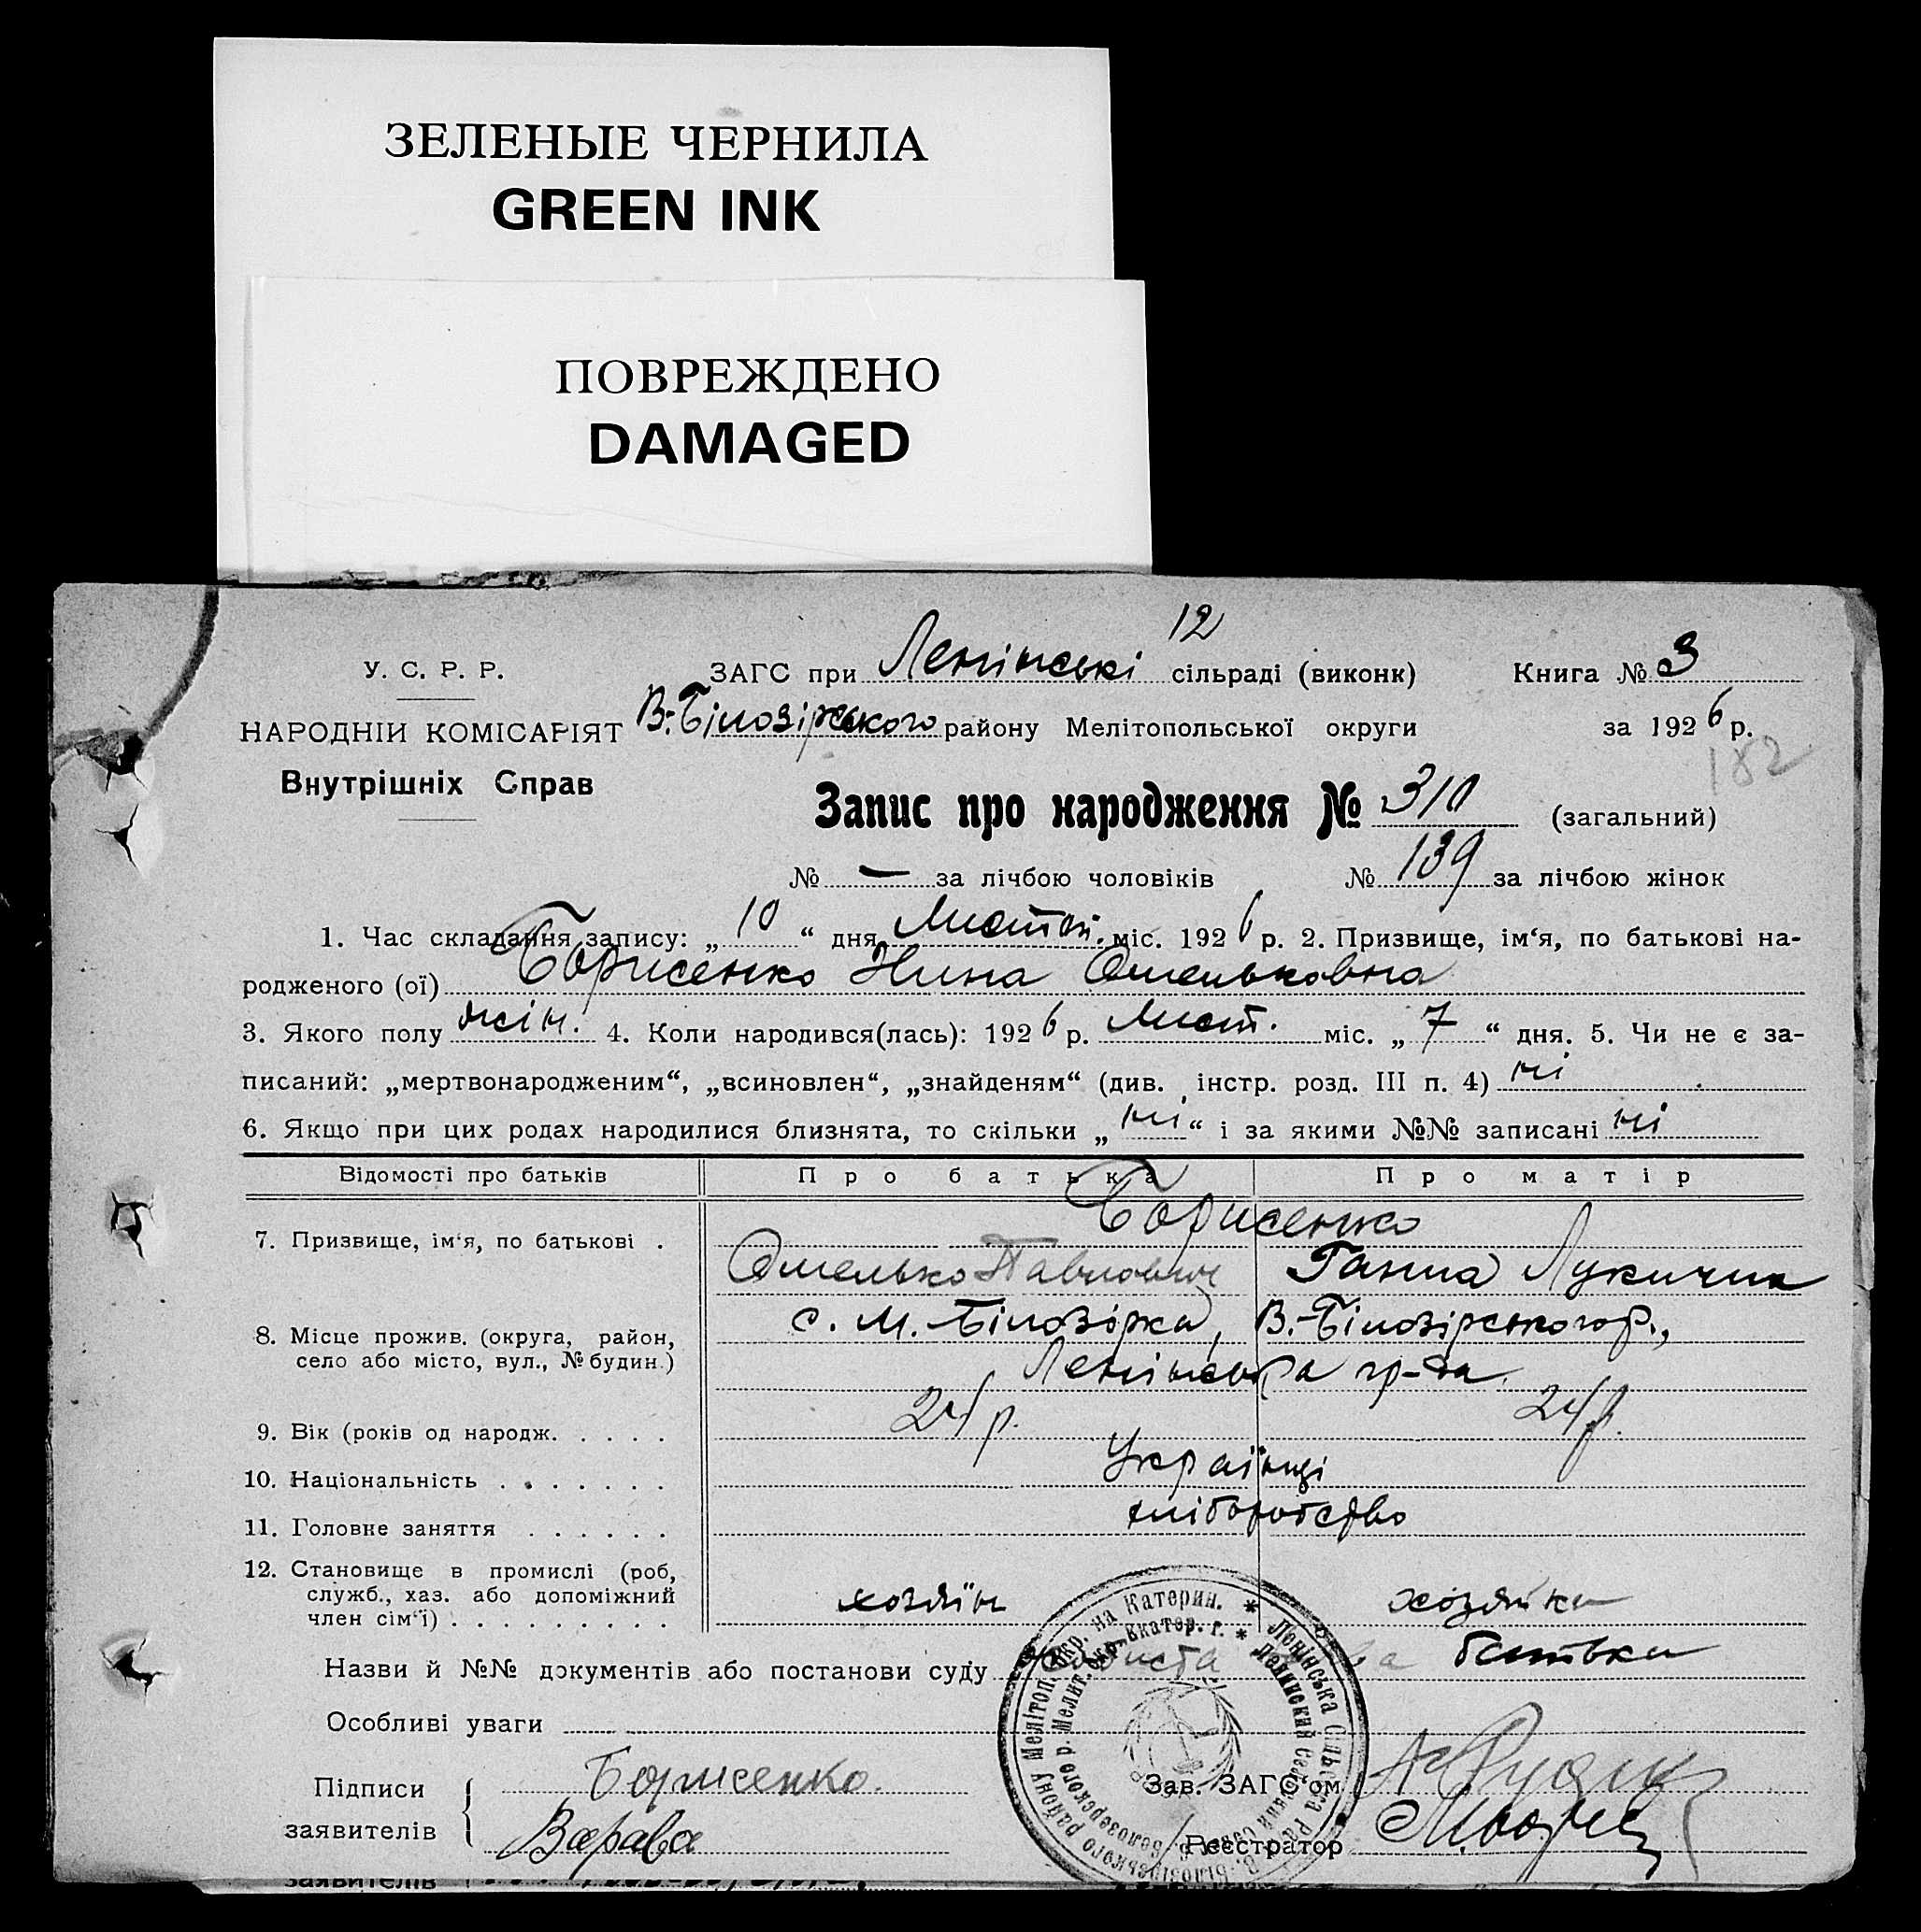 ЗЕЛЕНЫЕ ЧЕРНИЛА
GREEN INK
ПОВРЕЖДЕНО
DAMAGED
12
У. С. Р. Р. ЗАГС при Ленінські сільраді (виконк) Книга № 3
НАРОДНІЙ КОМІСАРІЯТ В.-Білозірського району Мелітопольської округи за 1926 р.
182
Внутрішніх Справ
Запис про народження № 310 (загальний)
№ — за лічбою чоловіків № 139 за лічбою жінок
1. Час складання запису: „ 10 “ дня Листоп. міс. 1926 р. 2. Призвище, ім‘я, по батькові на-
родженого (ої) Борисенко Нина Омельковна
3. Якого полу жін. 4. Коли народився(лась): 1926 р. Лист. міс. „ 7 “ дня. 5. Чи не є за-
писаний: „мертвонародженим“, „всиновлен“, „знайденям“ (див. інстр. розд. III п. 4) ні
6. Якщо при цих родах народилися близнята, то скільки „ ні “ і за якими №№ записані ні
Відомості про батьків Про батька Про матір
7. Призвище, ім‘я, по батькові . Борисенко
Омелько Павлович Ганна Лукична
8. Місце прожив. (округа, район, с. М. Білозірка, В.-Білозірського р.,
село або місто, вул., № будин.) Ленінська гр-да
9. Вік (років од народж. . . . . 24 р. 24 р.
10. Національність . . . . . . . Українці
11. Головне заняття . . . . . . хліборобство
12. Становище в промислі (роб, служб., хаз. або допоміжний член сім‘ї) . . . . . . . . . хозяїн хозяйка
Назви й №№ документів або постанови суду батька
Особливі уваги
Підписи заявителів Борисенко.
Варава
Зав. ЗАГС‘ом
Реєстратор
Ленінська Сільська Рада В. Білозірського району Мелітоп. окр. на Катерин.
заявителів